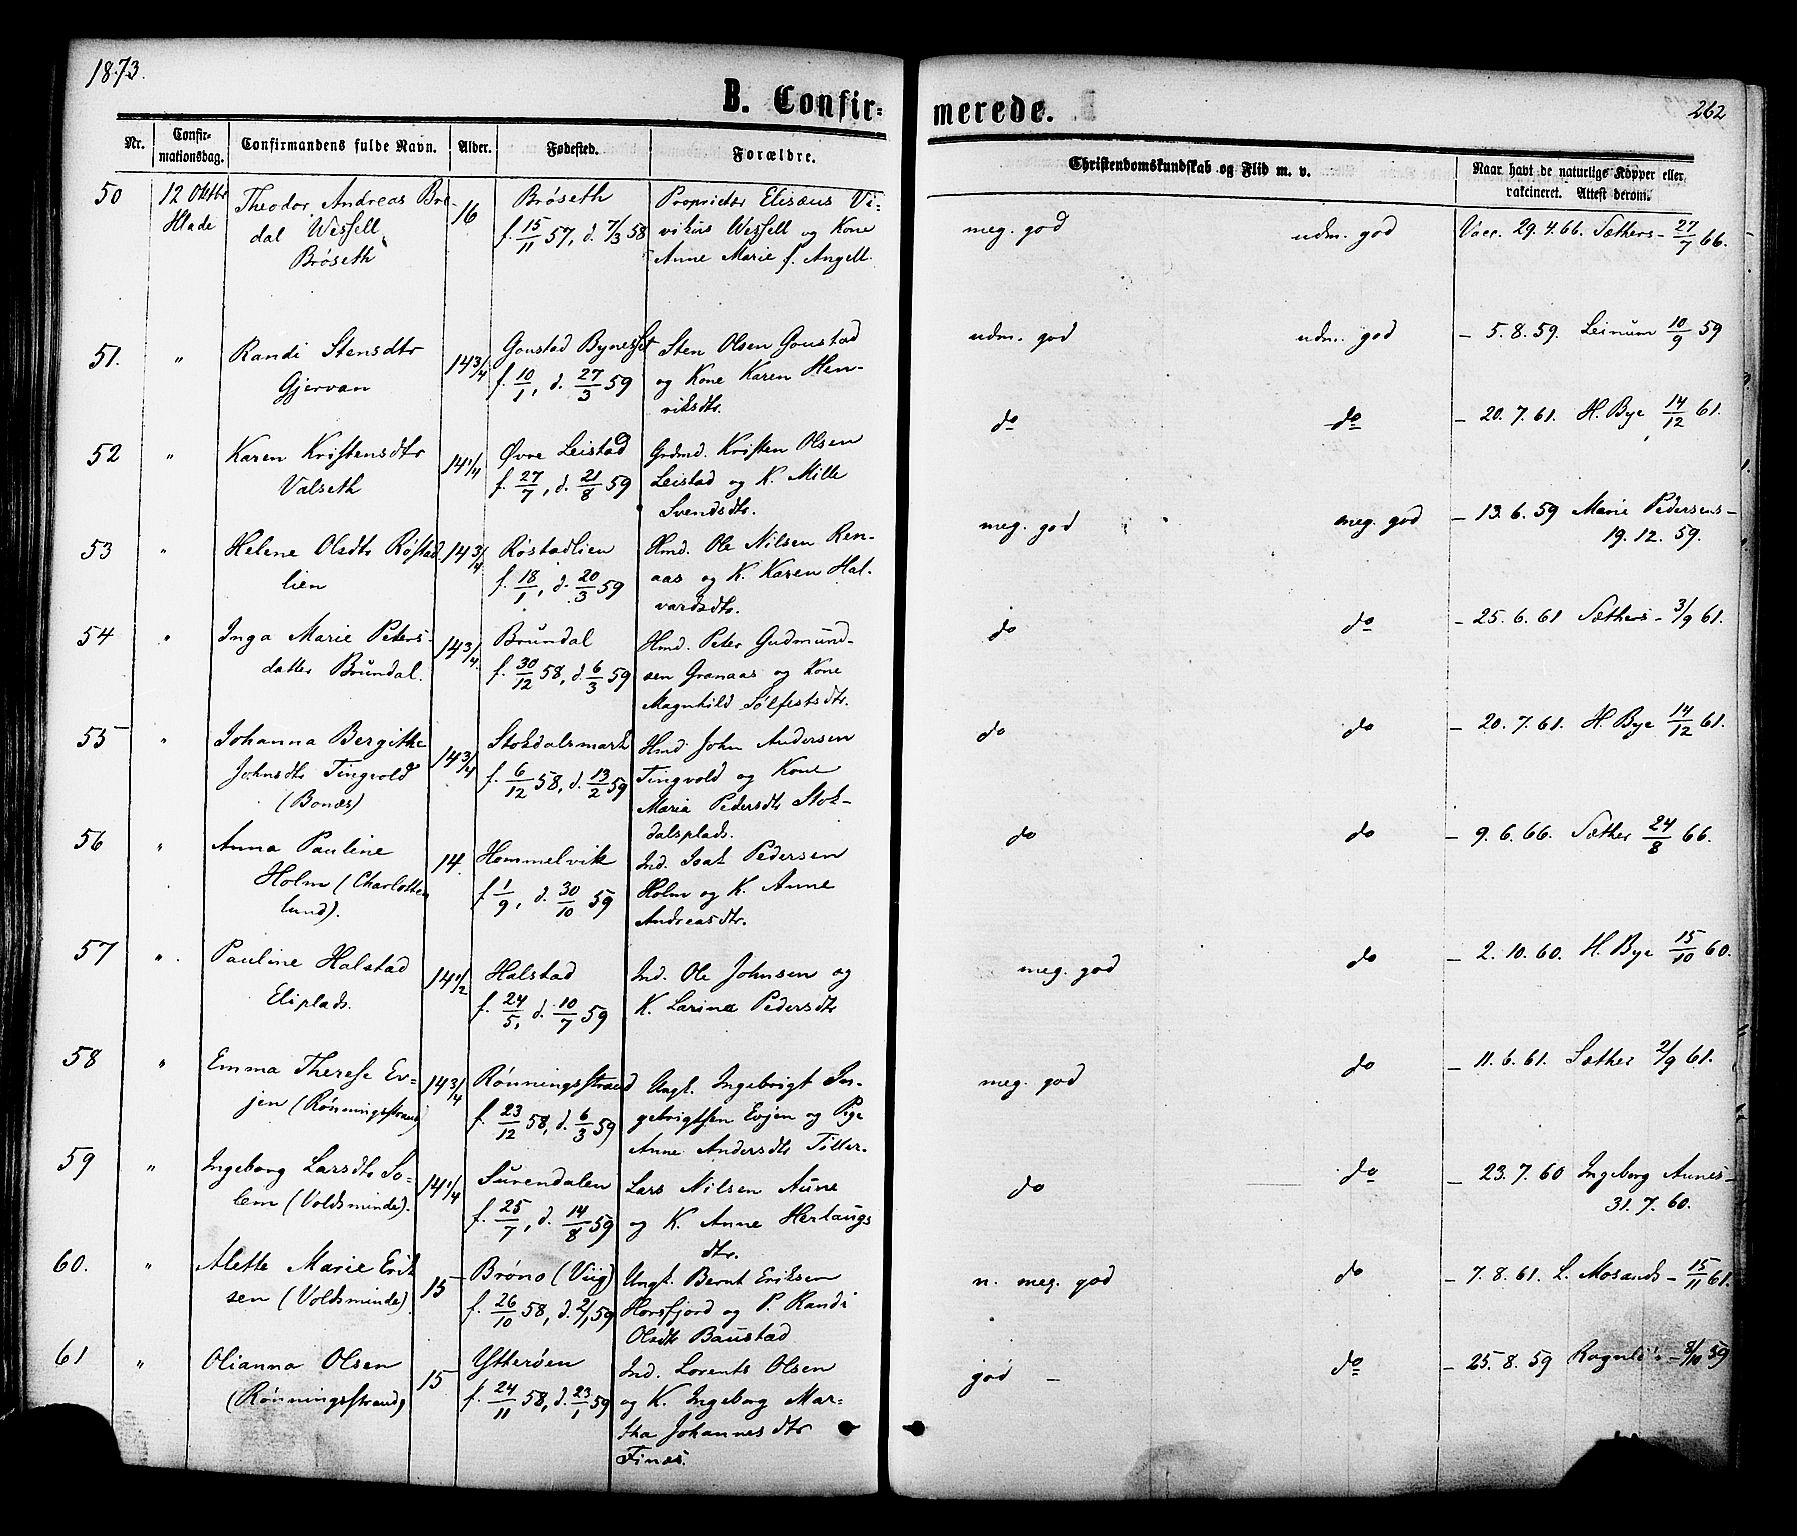 1873.
B. Confir-
merede.
262
Nr.
Confir-
mationsdag.
Confirmandens fulde Navn.
Alder.
Fødested.
Forældre.
Christendomskundskab og Flid m. v.
Naar havt de naturlige Kopper eller
vakcineret. Attest derom.
50 12 Oktbr Theodor Andreas Bre- 16 Brøseth Proprietær Elisæus Vi-
Hlade dal Wesfell f. 15/11 57, d. 7/3 58 vikins Wesfell og Kone
Brøseth Anne Marie f. Angell.
meg. god udm. god Vacc. 29.4.66. Sæthers - 27/7 66.
51. " Randi Stensdtr 14 3/4 Goustad Bynesset Sten Olsen Goustad
Gjervan f. 10/1, d. 27/3 59 og Kone Karen Hen-
riksdtr.
udm. god udm. god - 5.8.59. Leinum 10/9 59
52 " Karen Kristensdtr 14 1/4 Øvre Leistad Grdmd. Kristen Olsen
Valseth f. 27/7, d. 21/8 59 Leistad og K. Mille
Svendsdtr.
do do - 20.7.61. H. Bye 14/12 61.
53 " Helene Olsdtr Røstad 14 3/4 Røstadlien Hmd. Ole Nilsen Ren-
lien f. 18/1, d. 20/3 59 aas og K. Karen Hal-
vardsdtr.
meg. god meg. god - 13.6.59 Marie Pedersens-
19.12.59.
54 " Inga Marie Peters- 14 3/4. Brundal Hmd. Peter Gudmund-
datter Brundal. f. 30/12 58, d. 6/3 59 sen Granaas og Kone
Magnhild Sølfestsdtr.
do do - 25.6.61 Sæthers - 3/9 61.
55 " Johanna Bergithe 14 3/4 Stokdalsmark Hmd. John Andersen
Johnsdtr Tingvold f. 6/12 58, d. 13/2 59 Tingvold og Kone
(Bonæs) Maria Pedersdtr Stok-
dalsplads.
do do - 20.7.61. H. Bye 14/12 61.
56 " Anna Pauline 14. Hommelvik Ind. Isak Pedersen
Holm (Charlotten f. 1/9, d. 30/10 59 Holm og K. Anne
lund). Andreasdtr.
do do - 9.6.66. Sæther 24/8 66.
57 " Pauline Halstad 14 1/2 Halstad Ind. Ole Johnsen og
Eliplads. f. 24/5, d. 10/7 59 K. Larina Pedersdtr
meg. god do - 2.10.60. H. Bye 15/10 60.
58 " Emma Therese Ev- 14 3/4 Rønningsstrand Ungk. Ingebrigt In-
jen (Rønningsstrand) f. 23/12 58, d. 6/3 59 gebrigtsen Evjen og Pige
Anne Andersdtr Tiller.
meg. god do - 11.6.61. Sæther 2/9 61.
59 " Ingeborg Larsdtr So- 14 1/4 Surendalen Lars Nilsen Aune
lem (Voldsminde). f. 25/7, d. 14/8 59 og K. Anne Herlaugs
dtr.
do do - 23.7.60 Ingeborg Aunes-
31.7.60.
60. " Alette Marie Erik 15 Brøno (Viig) Ungk. Bernt Eriksen
sen (Voldsminde). f. 26/10 58, d. 2/1 59 Horsfjord og P. Randi
Olsdtr Baustad
n. meg. god do - 7.8.61. L. Mosands - 15/11 61.
61 " Olianna Olsen 15 Ytterøen Ind. Lorents Olsen
(Rønningsstrand) f. 24/11 58, d. 23/1 59 og K. Ingeborg Mar-
tha Johannesdtr
Finæs.
god - do - 25.8.59 8/10 59